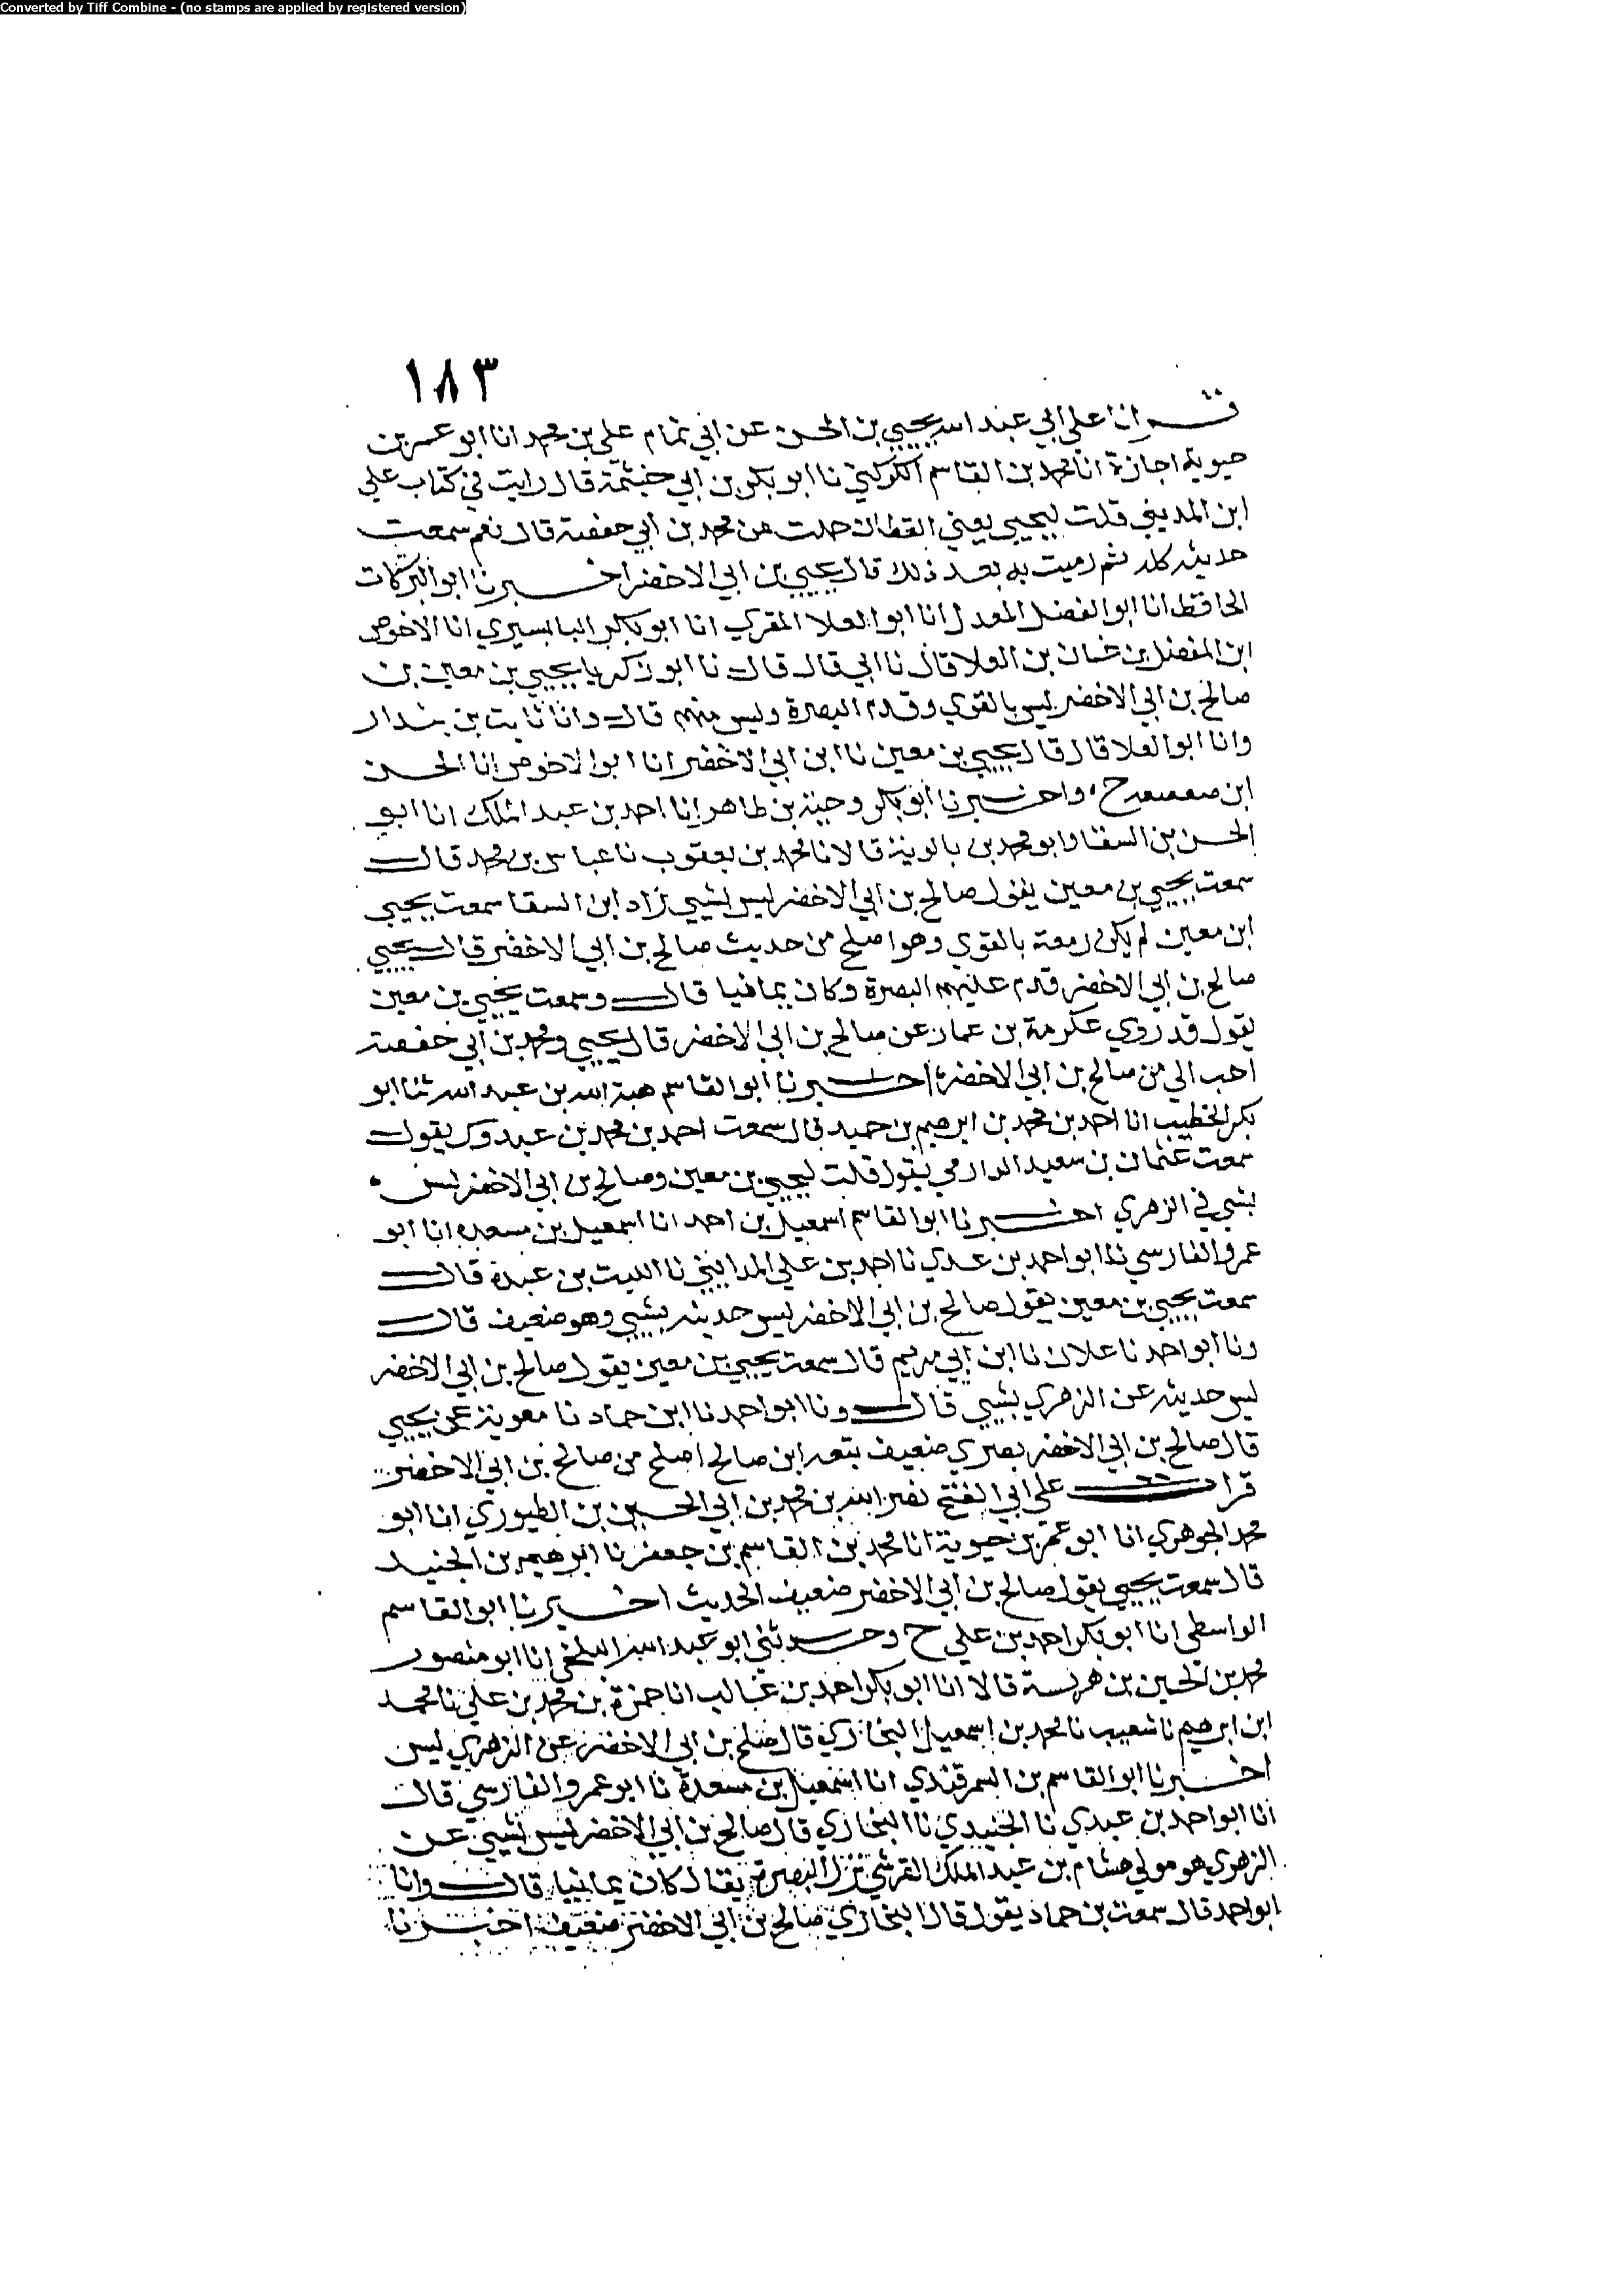 Converted by Tiff Combine - (no stamps are applied by registered version)
١٨٣
قرانا علي ابي عبد الله يحيي بن الحسن عن ابي تمام علي بن محمد انا ابو عمر بن
حيوية اجازة انا محمد بن القاسم الكوكبي نا ابو بكر بن ابي خيثمة قال رايت في كتاب علي
ابن المديني قلت ليحيي يعني القطان حملت عن محمد بن ابي حفصة قال نعم سمعت
حديثه كله ثم رميت به بعد ذلك قال يحيي بن ابي الاخضر اخبرنا ابو البركات
الحافظ انا ابو الفضل المعدل انا ابو العلا المقري انا ابو بكر البابسيري انا الاخوص
ابن المفضل بن غسان بن العلا قال نا ابي قال قال نا ابو زكريا يحيي بن معين بن
صالح بن ابي الاخضر ليس بالقوي وقدم البصرة وليس منهم قال وانا ثابت بن بندار
وانا ابو العلا قال قال يحيي بن معين نا ابن ابي الاخضر انا ابو الاخوص انا الحسن
ابن صعصعه ح واخبرنا ابو بكر وجيه بن طاهر انا احمد بن عبد الملك انا ابو
الحسن بن السقا وابو محمد بن بالوية قالا نا محمد بن يعقوب نا عباس بن محمد قال
سمعت يحيي بن معين يقول صالح بن ابي الاخضر ليس بشيي زاد ابن السقا سمعت يحيي
ابن معين لم يكن زمعة بالقوي وهو اصلح من حديث صالح بن ابي الاخضر قال يحيي
صالح بن ابي الاخضر قدم عليهم البصرة وكان يمانيا قال وسمعت يحيي بن معين
يقول قد روي عكرمة بن عمار عن صالح بن ابي الاخضر قال يحيي ومحمد بن ابي حفصة
احب الي من صالح بن ابي الاخضر اخبرنا ابو القاسم هبة الله بن عبد الله ثنا ابو
بكر الخطيب انا احمد بن محمد بن ابرهيم بن حميد قال سمعت احمد بن محمد بن عبدوس يقول
سمعت عثمان بن سعيد الدارمي يقول قلت ليحيي بن معين وصالح بن ابي الاخضر ليس
بشي في الزهري اخبرنا ابو القاسم اسمعيل بن احمد انا اسمعيل بن مسعده انا ابو
عمرو الفارسي نا ابو احمد بن عدي نا احمد بن علي المدايني نا الليث بن عبدة قال
سمعت يحيي بن معين يقول صالح بن ابي الاخضر ليس حديثه بشيي وهو ضعيف قال
ونا ابو احمد نا علان نا ابن ابي مريم قال سمعت يحيي بن معين يقول صالح بن ابي الاخضر
ليس حديثه عن الزهري بشيي قال ونا ابو احمد نا ابن حماد نا معوية عن يحيي
قال صالح بن ابي الاخضر بصري ضعيف ابن صالح اصلح من صالح بن ابي الاخضر
قرات علي ابي الفتح نصر الله بن محمد بن ابي الحسين بن الطيوري انا ابو
محمد الجوهري انا ابو عمر بن حيوية انا محمد بن القاسم بن جعفر نا ابرهيم بن الجنيد
قال سمعت يحيي يقول صالح بن ابي الاخضر ضعيف الحديث اخبرنا ابو القاسم
الواسطي انا ابو بكر احمد بن علي ح وحدثني ابو عبد الله البلخي انا ابو منصور
محمد بن الحسين بن هريسة قالا انا ابو بكر احمد بن غالب انا حمزة بن محمد بن علي نا محمد
ابن ابرهيم نا شعيب نا محمد بن اسمعيل البخاري قال صلح بن ابي الاخضر عن الزهري ليس
اخبرنا ابو القاسم بن السمرقندي انا اسمعيل بن مسعدة نا ابو عمرو الفارسي قال
انا ابو احمد بن عبدي نا الجنيدي نا البخاري قال صالح بن ابي الاخضر ليس بشيي عن
الزهري هو مولي هشام بن عبد الملك القرشي نزل البصرة يقال كان يمانيا قال وانا
ابو احمد قال سمعت بن حماد يقول قال البخاري صالح بن ابي الاخضر ضعيف اخبرنا